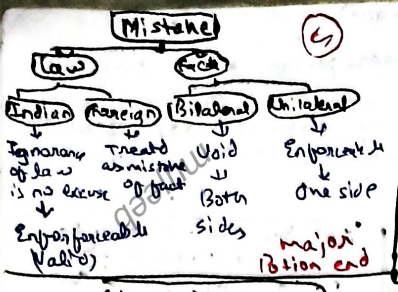 Mistake
5
Law
Fact
Indian
Foreign
Bilateral
Unilateral
Ignorance
of law
is no excuse
Enforceable
(Valid)
Treatd
as mistake
of fact
Void
Both
sides
Enforceable
one side
major
potion end
mujeeb